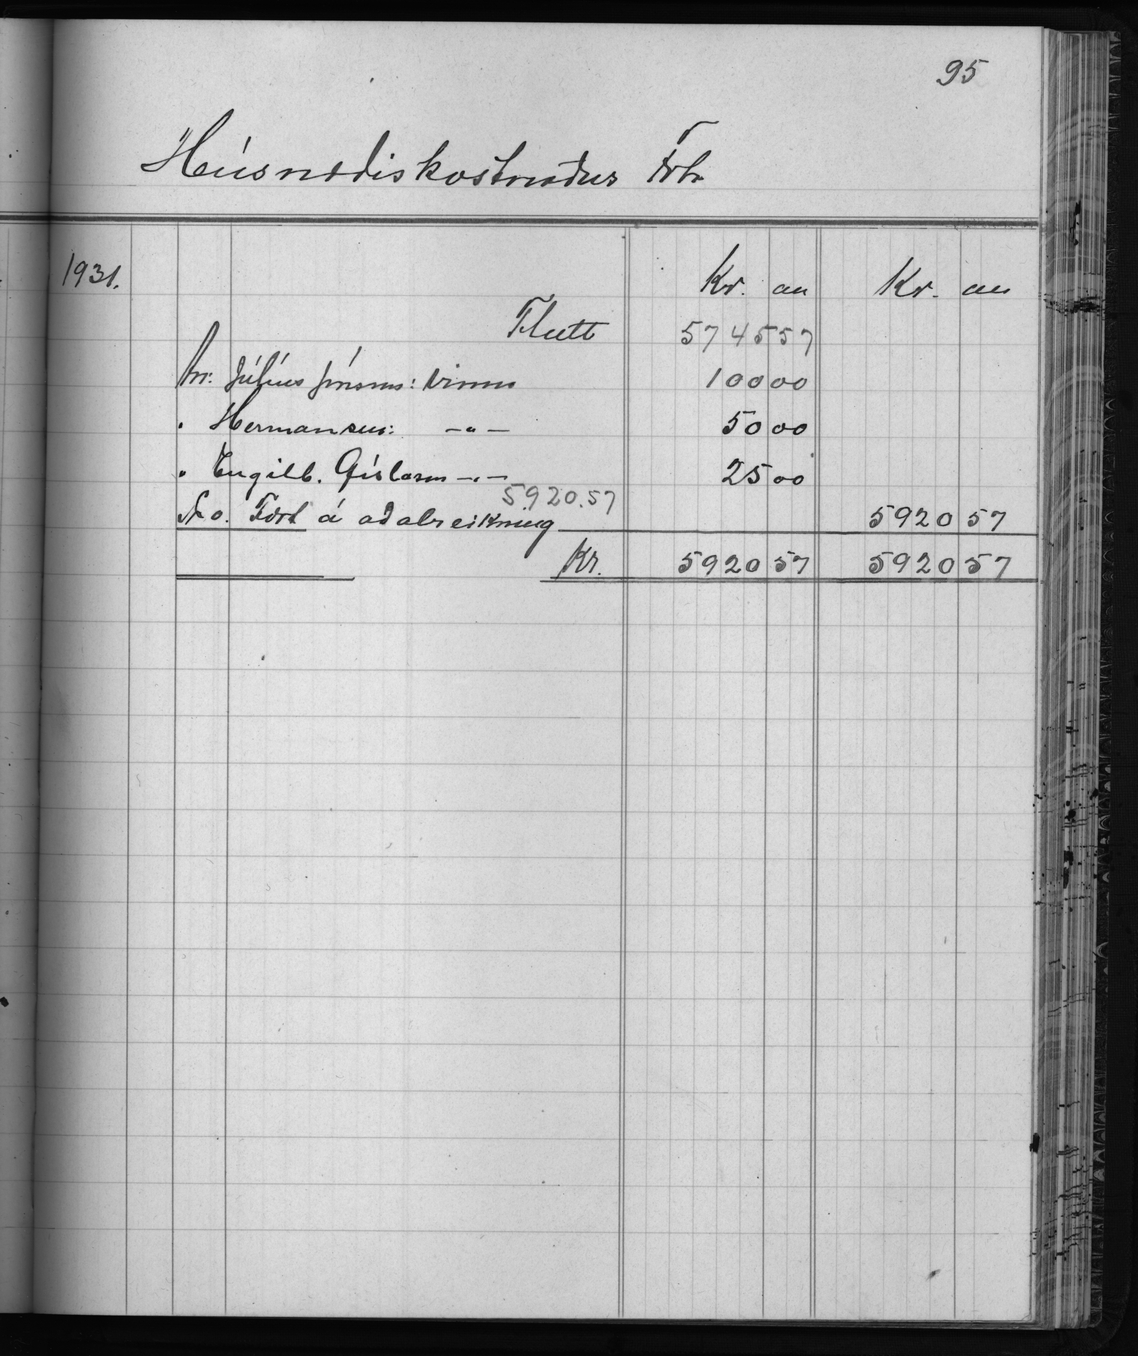 95
Húsnæðiskostnaður Frh
1931.
Kr. au Kr. au
Flutt 5745 57
Pr. Júlíus Jónsson: vinna 100 00
" Hermansen: -"- 50 00
" Engilb. Gíslason -"- 25 00
5920.57
Pr o. Fært á aðalreikning 5920 57
Kr. 5920 57 5920 57